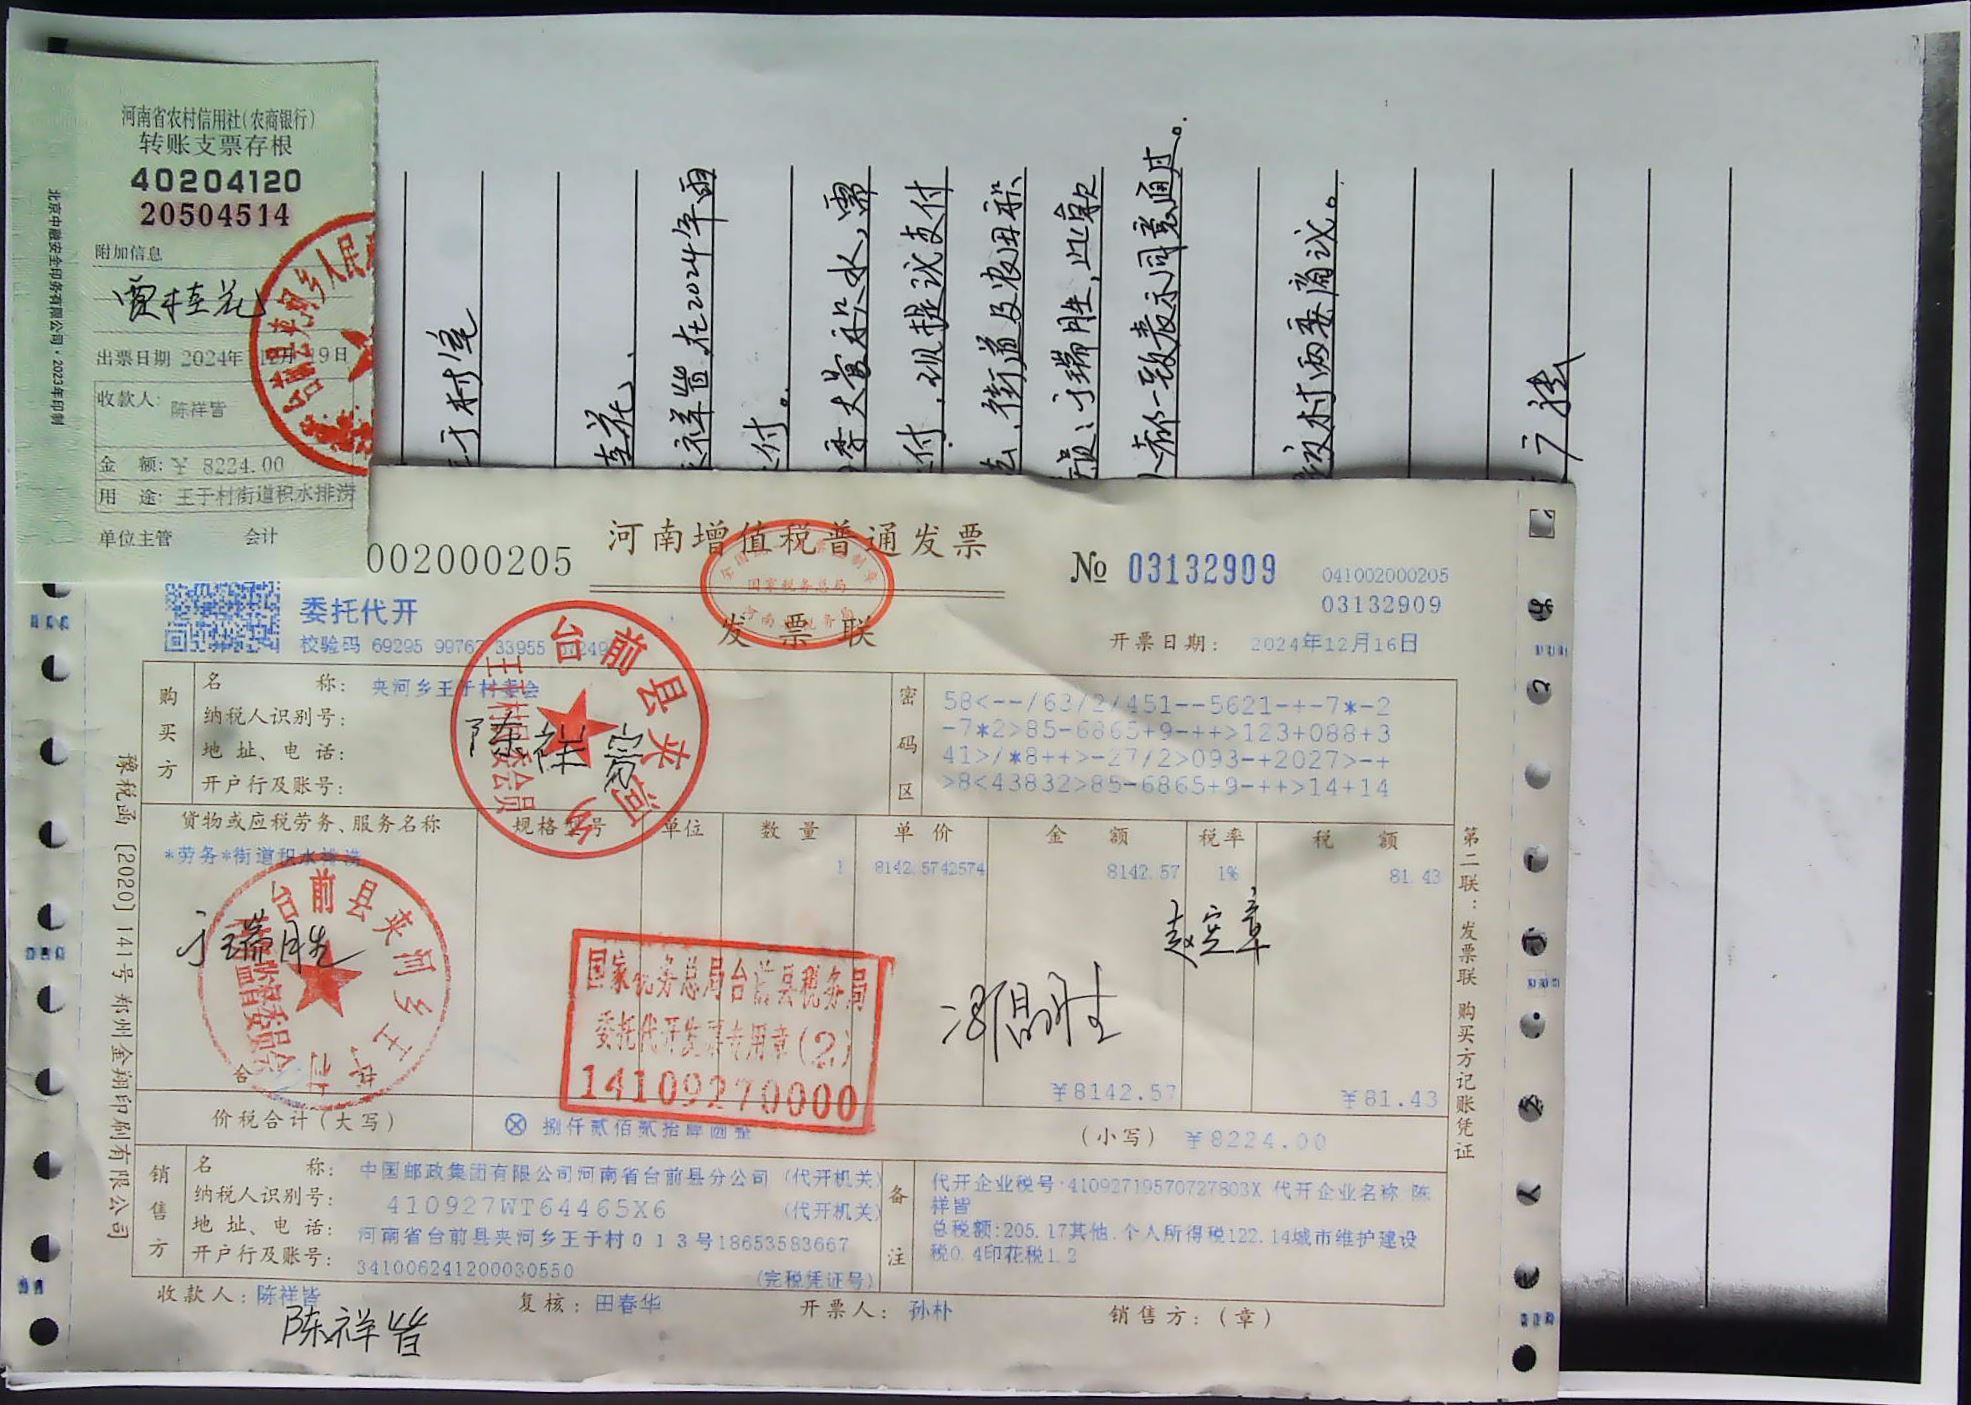 河南省农村信用社(农商银行)
转账支票存根
40204120
20504514
附加信息
贾桂花
出票日期 2024年 1 月 19日
收款人: 陈祥皆
金 额: ¥ 8224.00
用 途: 王于村街道积水排涝
单位主管 会计
北京中融安全印务有限公司·2023年印制
台前县夹河乡人民
于村
桂花、
祥皆在2024年雨
付。
季大量积水,需
付,现提议支付
街道及农田积
于瑞胜,此款
都一致表示同意通过。
村两委商议。
002000205
河南增值税普通发票
发票联
国家税务总局
№ 03132909
041002000205
03132909
委托代开
校验码 69295 99767 33955
开票日期: 2024年12月16日
购买方
名 称: 夹河乡王于村委会
纳税人识别号:
地 址、电 话:
开户行及账号:
陈祥富
台前县夹河乡
王于村 委会员
密码区
58<--/63/2/451--5621-+-7*-2
-7*2>85-6865+9-++>123+088+3
41>/*8++>-27/2>093-+2027>-+
>8<43832>85-6865+9-++>14+14
货物或应税劳务、服务名称 规格型号 单位 数 量 单 价 金 额 税率 税 额
*劳务*街道积水排涝 1 8142.5742574 8142.57 1% 81.43
于瑞胜
台前县夹河乡王 村
监督委员会
赵宪章
冯昌胜
国家税务总局台前县税务局
委托代开发票专用章(2)
14109270000
合
¥8142.57 ¥81.43
价税合计(大写) ⊗ 捌仟贰佰贰拾肆圆整 (小写) ¥8224.00
销售方
名 称: 中国邮政集团有限公司河南省台前县分公司 (代开机关)
纳税人识别号: 410927WT64465X6 (代开机关)
地 址、电 话: 河南省台前县夹河乡王于村013号18653583667
开户行及账号: 341006241200030550 (完税凭证号)
备注
代开企业税号:41092719570727803X 代开企业名称:陈
祥皆
总税额:205.17其他.个人所得税122.14城市维护建设
税0.4印花税1.2
收款人: 陈祥皆 复核: 田春华 开票人: 孙朴 销售方:(章)
陈祥皆
豫税函〔2020〕141号 郑州金翔印刷有限公司
第二联:发票联 购买方记账凭证